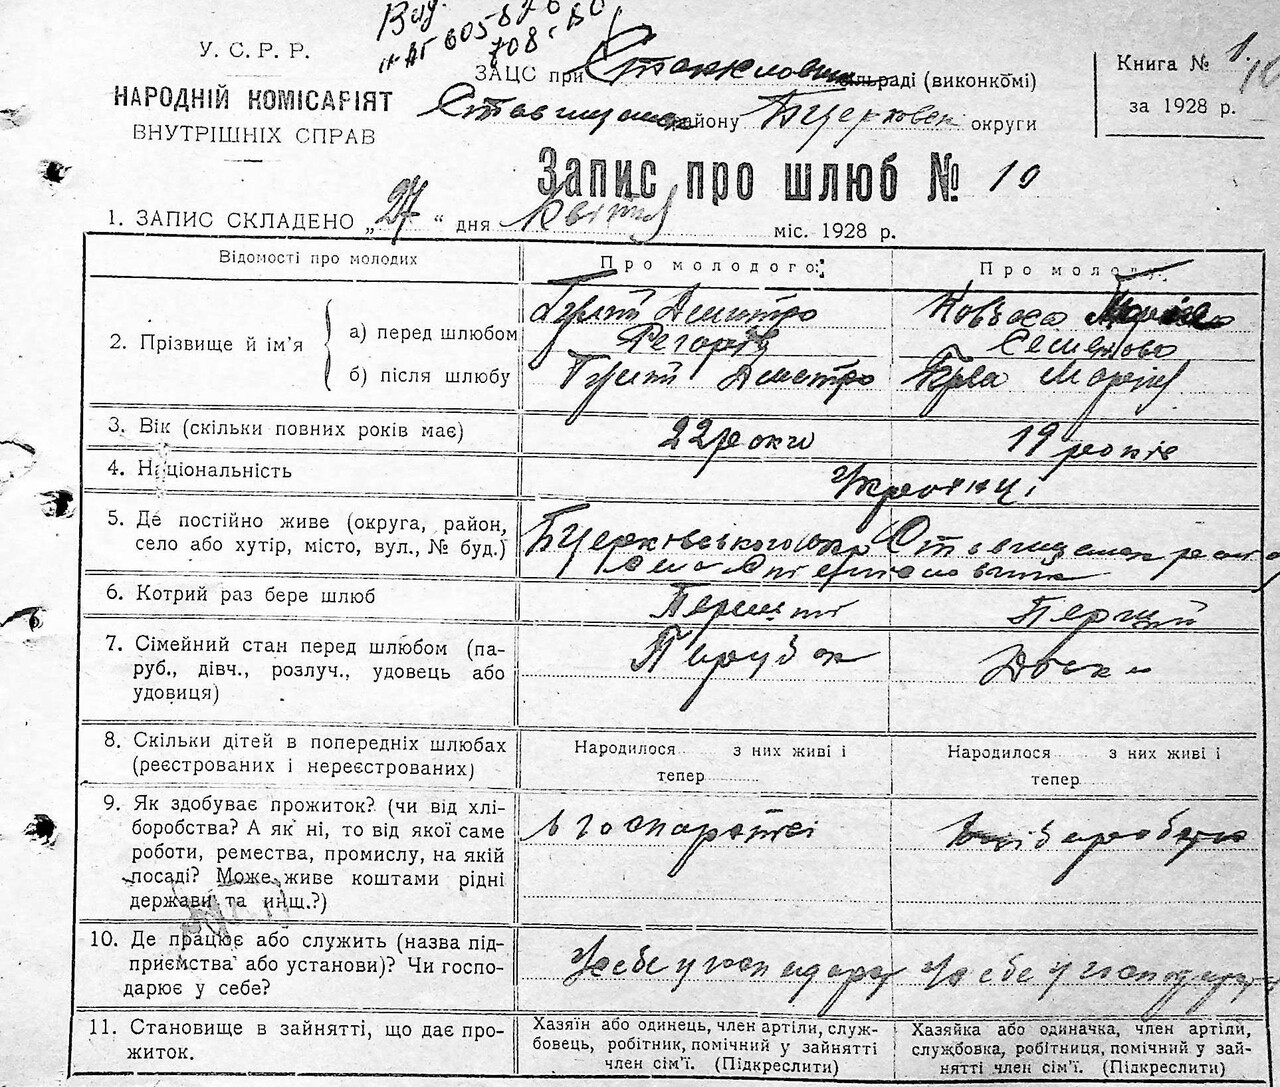 Вид.
У. С. Р. Р.
НАРОДНІЙ КОМІСАРІЯТ
ВНУТРІШНІХ СПРАВ
ЗАЦС при сільраді (виконкомі)
району Бцерковск округи
Книга № 1
за 1928 р.
Запис про шлюб № 10
1. ЗАПИС СКЛАДЕНО „27“ дня Квітня міс. 1928 р.
Відомості про молодих
Про молодого:
Про молоду:
2. Прізвище й ім'я
а) перед шлюбом
Дмитро
Ковбаса
Семенова
б) після шлюбу
Дмитро
3. Вік (скільки повних років має)
22 роки
19 років
4. Національність
Українці
5. Де постійно живе (округа, район, село або хутір, місто, вул., № буд.)
Бцерківського окр Ставищанск району
Село
6. Котрий раз бере шлюб
Перший
Перший
7. Сімейний стан перед шлюбом (паруб., дівч., розлуч., удовець або удовиця)
Парубок
8. Скільки дітей в попередніх шлюбах (реєстрованих і нереєстрованих)
Народилося з них живі і тепер
Народилося з них живі і тепер
9. Як здобуває прожиток? (чи від хліборобства? А як ні, то від якої саме роботи, ремества, промислу, на якій посаді? Може живе коштами рідні держави та инш.?)
10. Де працює або служить (назва підприємства або установи)? Чи господарює у себе?
У себе у господарстві
У себе у господарстві
11. Становище в зайнятті, що дає прожиток.
Хазяїн або одинець, член артіли, службовець, робітник, помічний у зайнятті член сім'ї. (Підкреслити)
Хазяйка або одиначка, член артіли, службовка, робітниця, помічний у зайнятті член сім'ї. (Підкреслити)